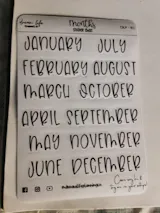 months
JANUARY JULY
FEBRUARY AUGUST
MARCH OCTOBER
APRIL SEPTEMBER
MAY NOVEMBER
JUNE DECEMBER